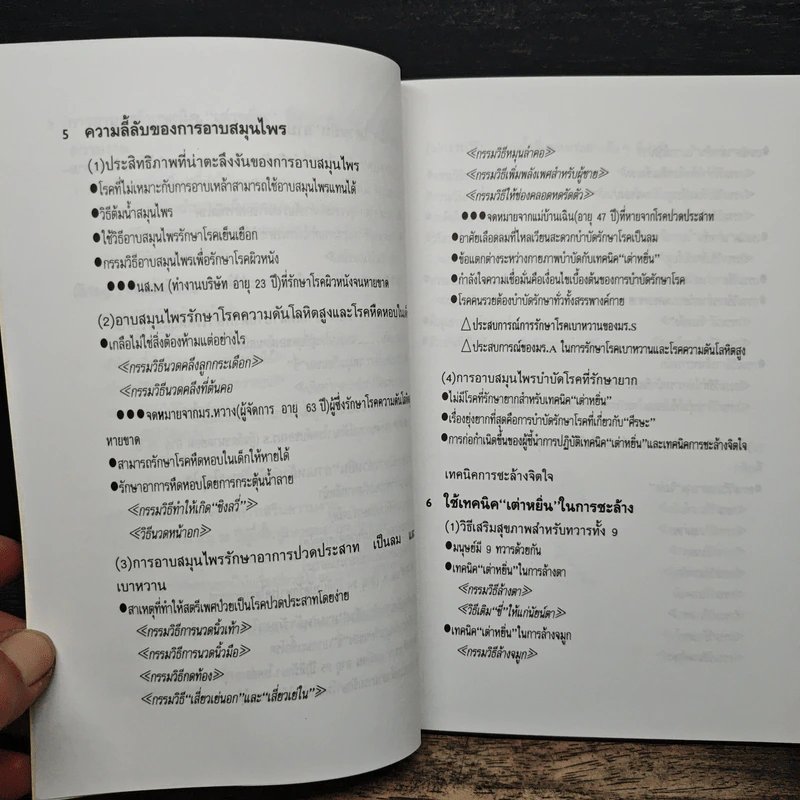 5 ความลี้ลับของการอาบสมุนไพร
(1)ประสิทธิภาพที่น่าตะลึงงันของการอาบสมุนไพร
●โรคที่ไม่เหมาะกับการอาบเหล้าสามารถใช้อาบสมุนไพรแทนได้
●วิธีต้มน้ำสมุนไพร
●ใช้วิธีอาบสมุนไพรรักษาโรคเย็นเยือก
●กรรมวิธีอาบสมุนไพรเพื่อรักษาโรคผิวหนัง
●●●นส.M (ทำงานบริษัท อายุ 23 ปี)ที่รักษาโรคผิวหนังจนหายขาด
(2)อาบสมุนไพรรักษาโรคความดันโลหิตสูงและโรคหืดหอบในเด็ก
●เกลือไม่ใช่สิ่งต้องห้ามแต่อย่างไร
≪กรรมวิธีนวดคลึงลูกกระเดือก≫
≪กรรมวิธีนวดคลึงที่ต้นคอ
●●●จดหมายจากมร.หวาง(ผู้จัดการ อายุ 63 ปี)ผู้ซึ่งรักษาโรคความดันโลหิต
หายขาด
●สามารถรักษาโรคหืดหอบในเด็กให้หายได้
●รักษาอาการหืดหอบโดยการกระตุ้นน้ำลาย
≪กรรมวิธีทำให้เกิด“ชิงลวี่”≫
≪วิธีนวดหน้าอก≫
(3)การอาบสมุนไพรรักษาอาการปวดประสาท เป็นลม และ
เบาหวาน
●สาเหตุที่ทำให้สตรีเพศป่วยเป็นโรคปวดประสาทโดยง่าย
≪กรรมวิธีการนวดนิ้วเท้า≫
≪กรรมวิธีการนวดนิ้วมือ≫
≪กรรมวิธีกดท้อง≫
≪กรรมวิธี“เสี่ยวเย่นอก”และ“เสี่ยวเย่ใน”≫
≪กรรมวิธีหมุนลำคอ≫
≪กรรมวิธีเพิ่มพลังเพศสำหรับผู้ชาย≫
≪กรรมวิธีให้ช่องคลอดหดรัดตัว≫
●●●จดหมายจากแม่บ้านเฉิน(อายุ 47 ปี)ที่หายจากโรคปวดประสาท
●อาศัยเลือดลมที่ไหลเวียนสะดวกบำบัดรักษาโรคเป็นลม
●ข้อแตกต่างระหว่างกายภาพบำบัดกับเทคนิค“เต๋าหยิ่น”
●กำลังใจความเชื่อมั่นคือเงื่อนไขเบื้องต้นของการบำบัดรักษาโรค
●โรคนรวยต้องบำบัดรักษาทั่วทั้งสรรพางค์กาย
△ประสบการณ์การรักษาโรคเบาหวานของมร.S
△ประสบการณ์ของมร.A ในการรักษาโรคเบาหวานและโรคความดันโลหิตสูง
(4)การอาบสมุนไพรบำบัดโรคที่รักษายาก
●ไม่มีโรคที่รักษายากสำหรับเทคนิค“เต๋าหยิ่น”
●เรื่องยุ่งยากที่สุดคือการบำบัดรักษาโรคที่เกี่ยวกับ“ศีรษะ”
●การก่อกำเนิดขึ้นของผู้ชี้นำการปฏิบัติเทคนิค“เต๋าหยิ่น”และเทคนิคการชะล้างจิตใจ
เทคนิคการชะล้างจิตใจ
6 ใช้เทคนิค“เต๋าหยิ่น”ในการชะล้าง
(1)วิธีเสริมสุขภาพสำหรับทวารทั้ง 9
●มนุษย์มี 9 ทวารด้วยกัน
●เทคนิค“เต๋าหยิ่น”ในการล้างตา
≪กรรมวิธีล้างตา≫
≪วิธีเติม“ชี่”ให้แก่นัยน์ตา≫
●เทคนิค“เต๋าหยิ่น”ในการล้างจมูก
≪กรรมวิธีล้างจมูก≫